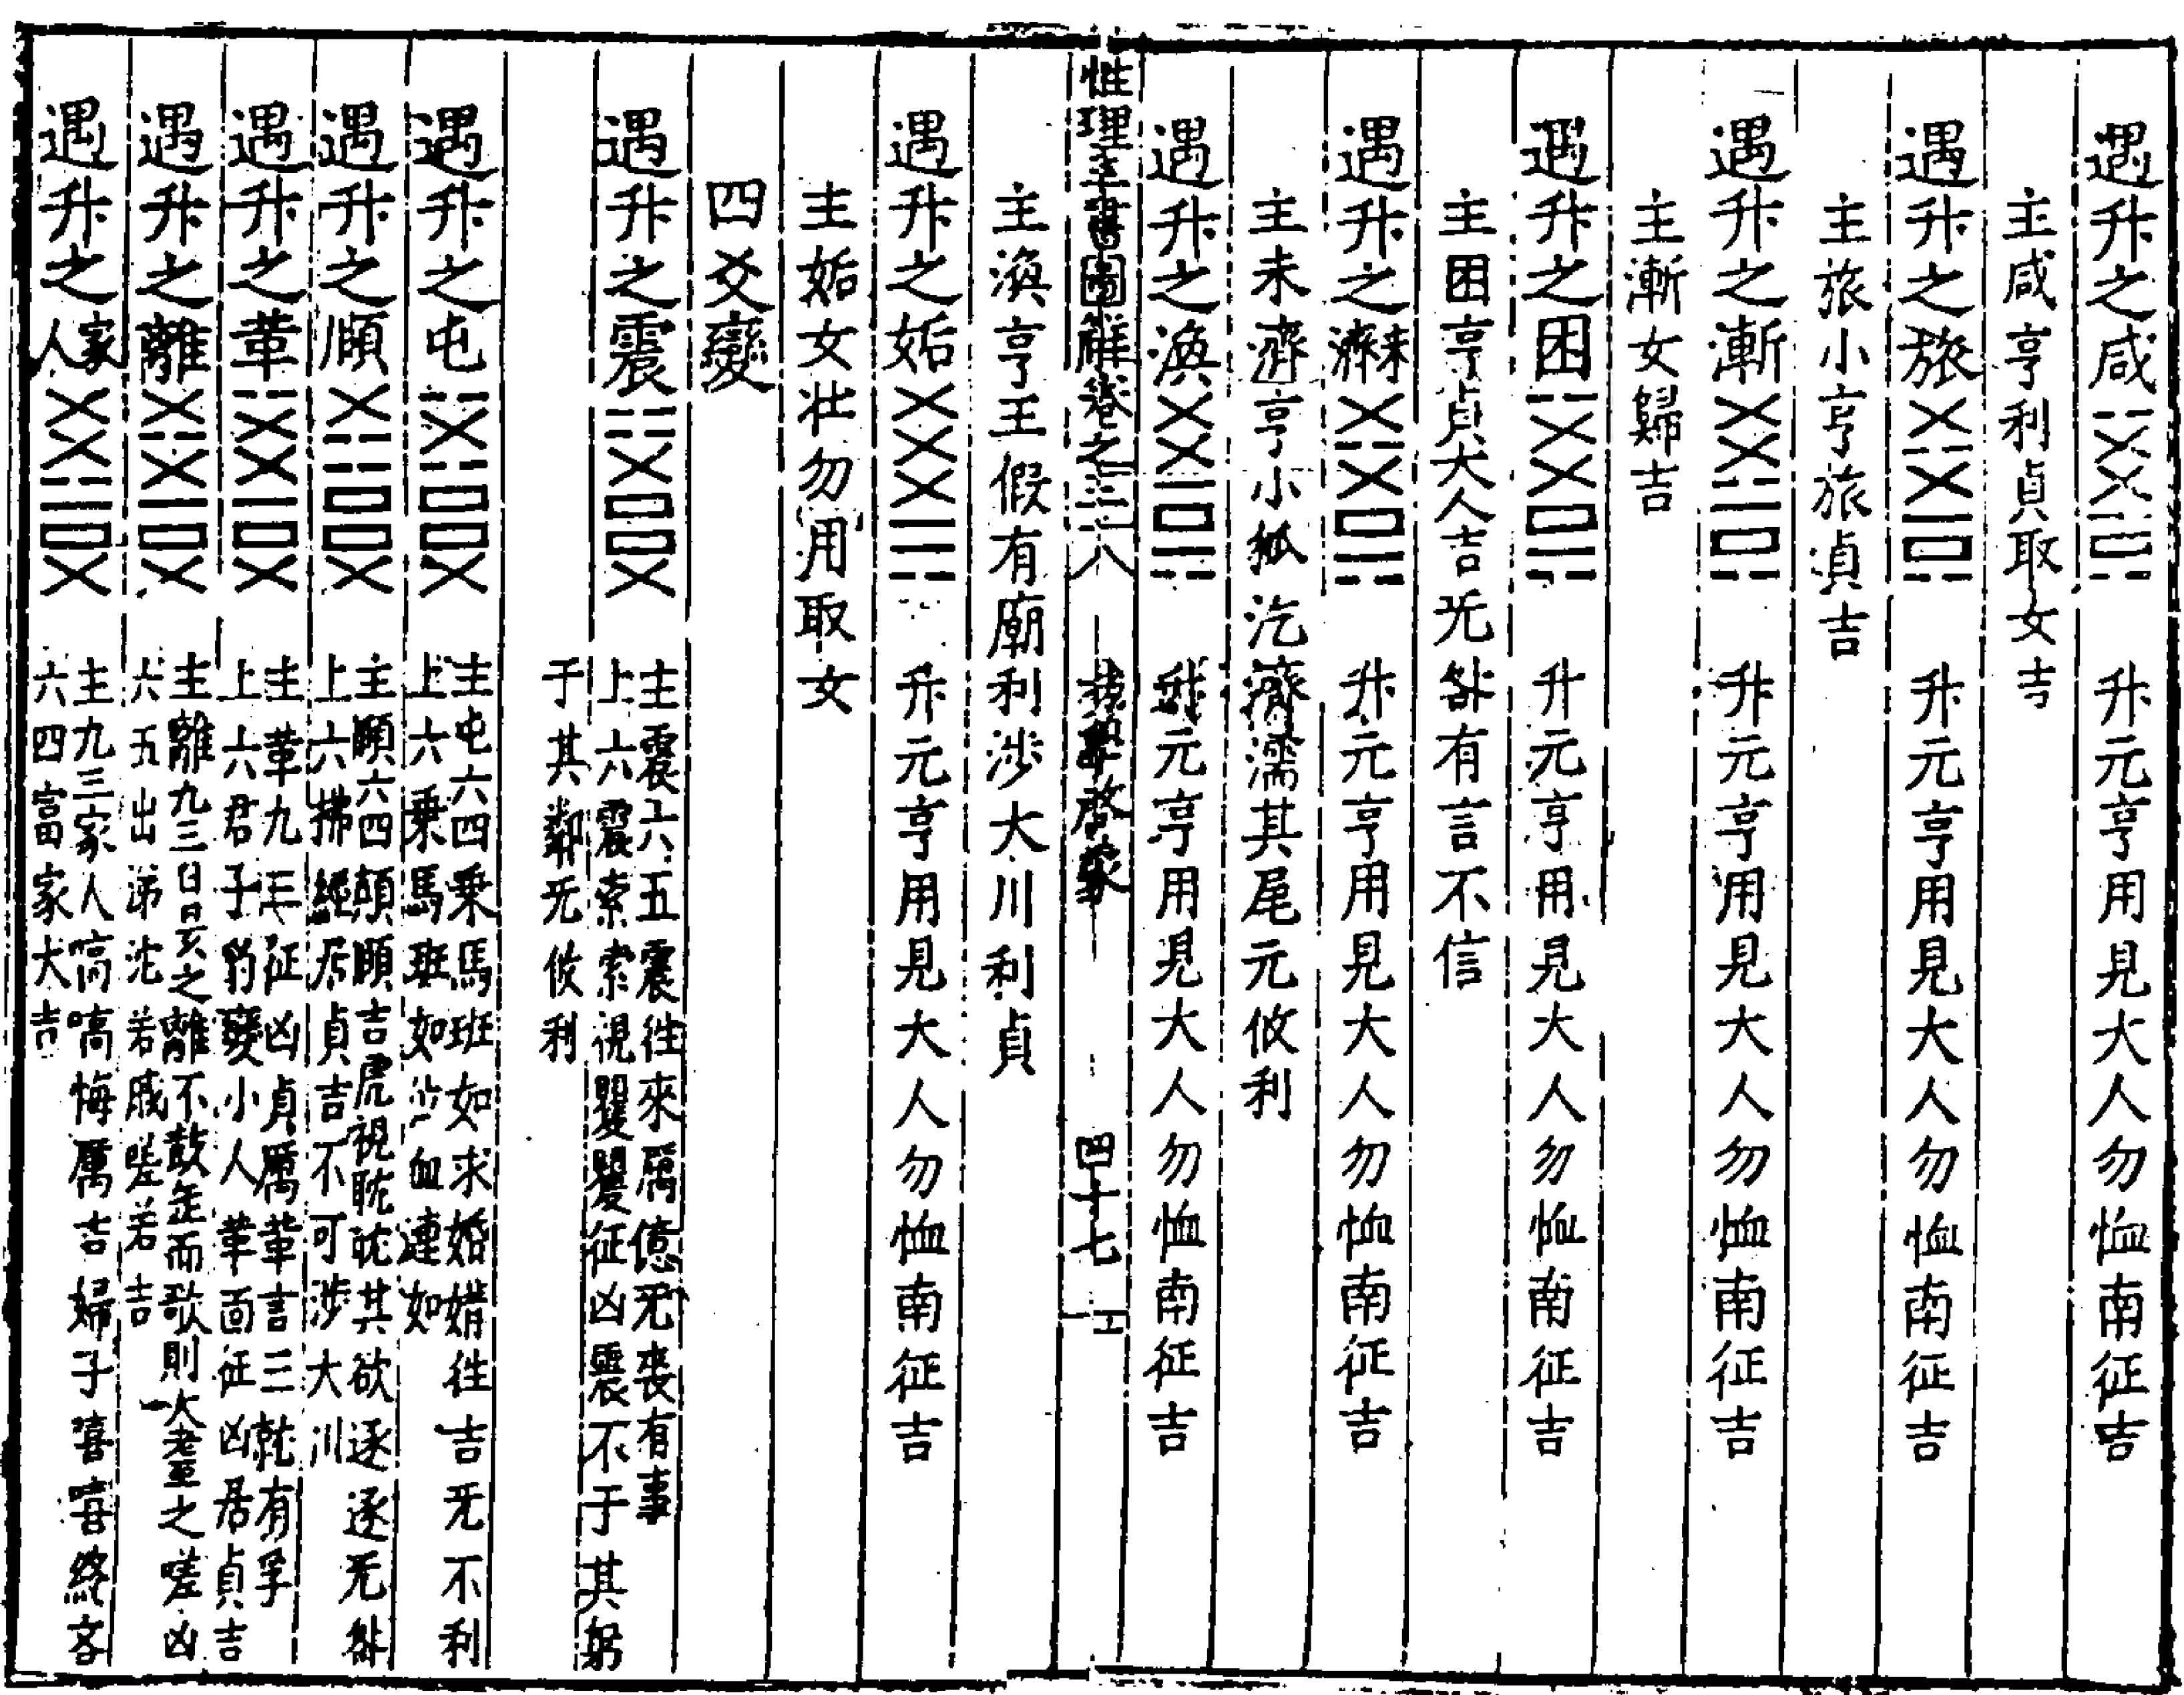 遇升之咸　升元亨用見大人勿恤南征吉
主咸亨利貞取女吉
遇升之旅　升元亨用見大人勿恤南征吉
主旅小亨旅貞吉
遇升之漸　升元亨用見大人勿恤南征吉
主漸女歸吉
遇升之困　升元亨用見大人勿恤南征吉
主困亨貞大人吉无咎有言不信
遇升之未濟　升元亨用見大人勿恤南征吉
主未濟亨小狐汔濟濡其尾无攸利
遇升之渙　升元亨用見大人勿恤南征吉
性理羣書圖解卷之二三八　易學啓蒙　四十七
主渙亨王假有廟利涉大川利貞
遇升之姤　升元亨用見大人勿恤南征吉
主姤女壯勿用取女
四爻變
遇升之震
主震六五震往來厲億无喪有事
上六震索索視矍矍征凶震不于其躬
于其鄰无攸利
遇升之屯
主屯六四乗馬班如求婚媾往吉无不利
上六乗馬班如泣血漣如
遇升之頤
主頤六四顛頤吉虎視眈眈其欲逐逐无咎
上六拂經居貞吉不可涉大川
遇升之革
主革九三征凶貞厲革言三就有孚
上六君子豹變小人革面征凶居貞吉
遇升之離
主離九三日昃之離不鼓缶而歌則大耋之嗟凶
六五出涕沱若戚嗟若吉
遇升之家人
主九三家人嗃嗃悔厲吉婦子嘻嘻終吝
六四富家大吉